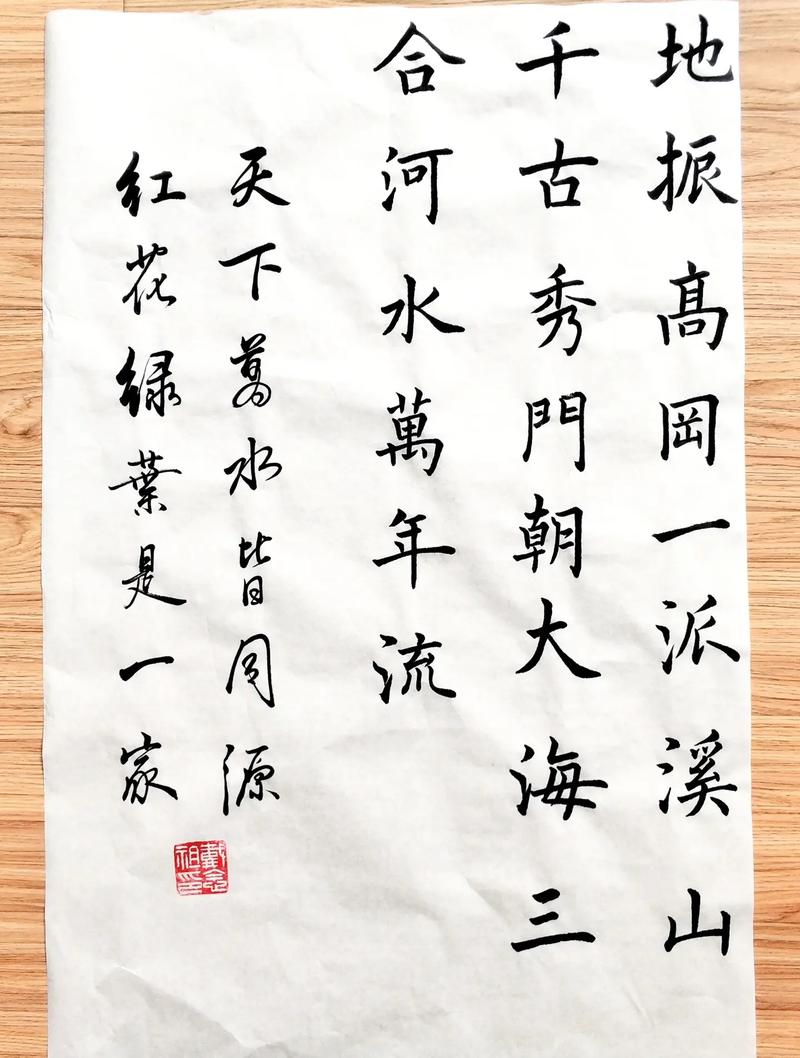 地振高岡一派溪山
千古秀門朝大海三
合河水萬年流
天下萬水皆同源
紅花绿葉是一家